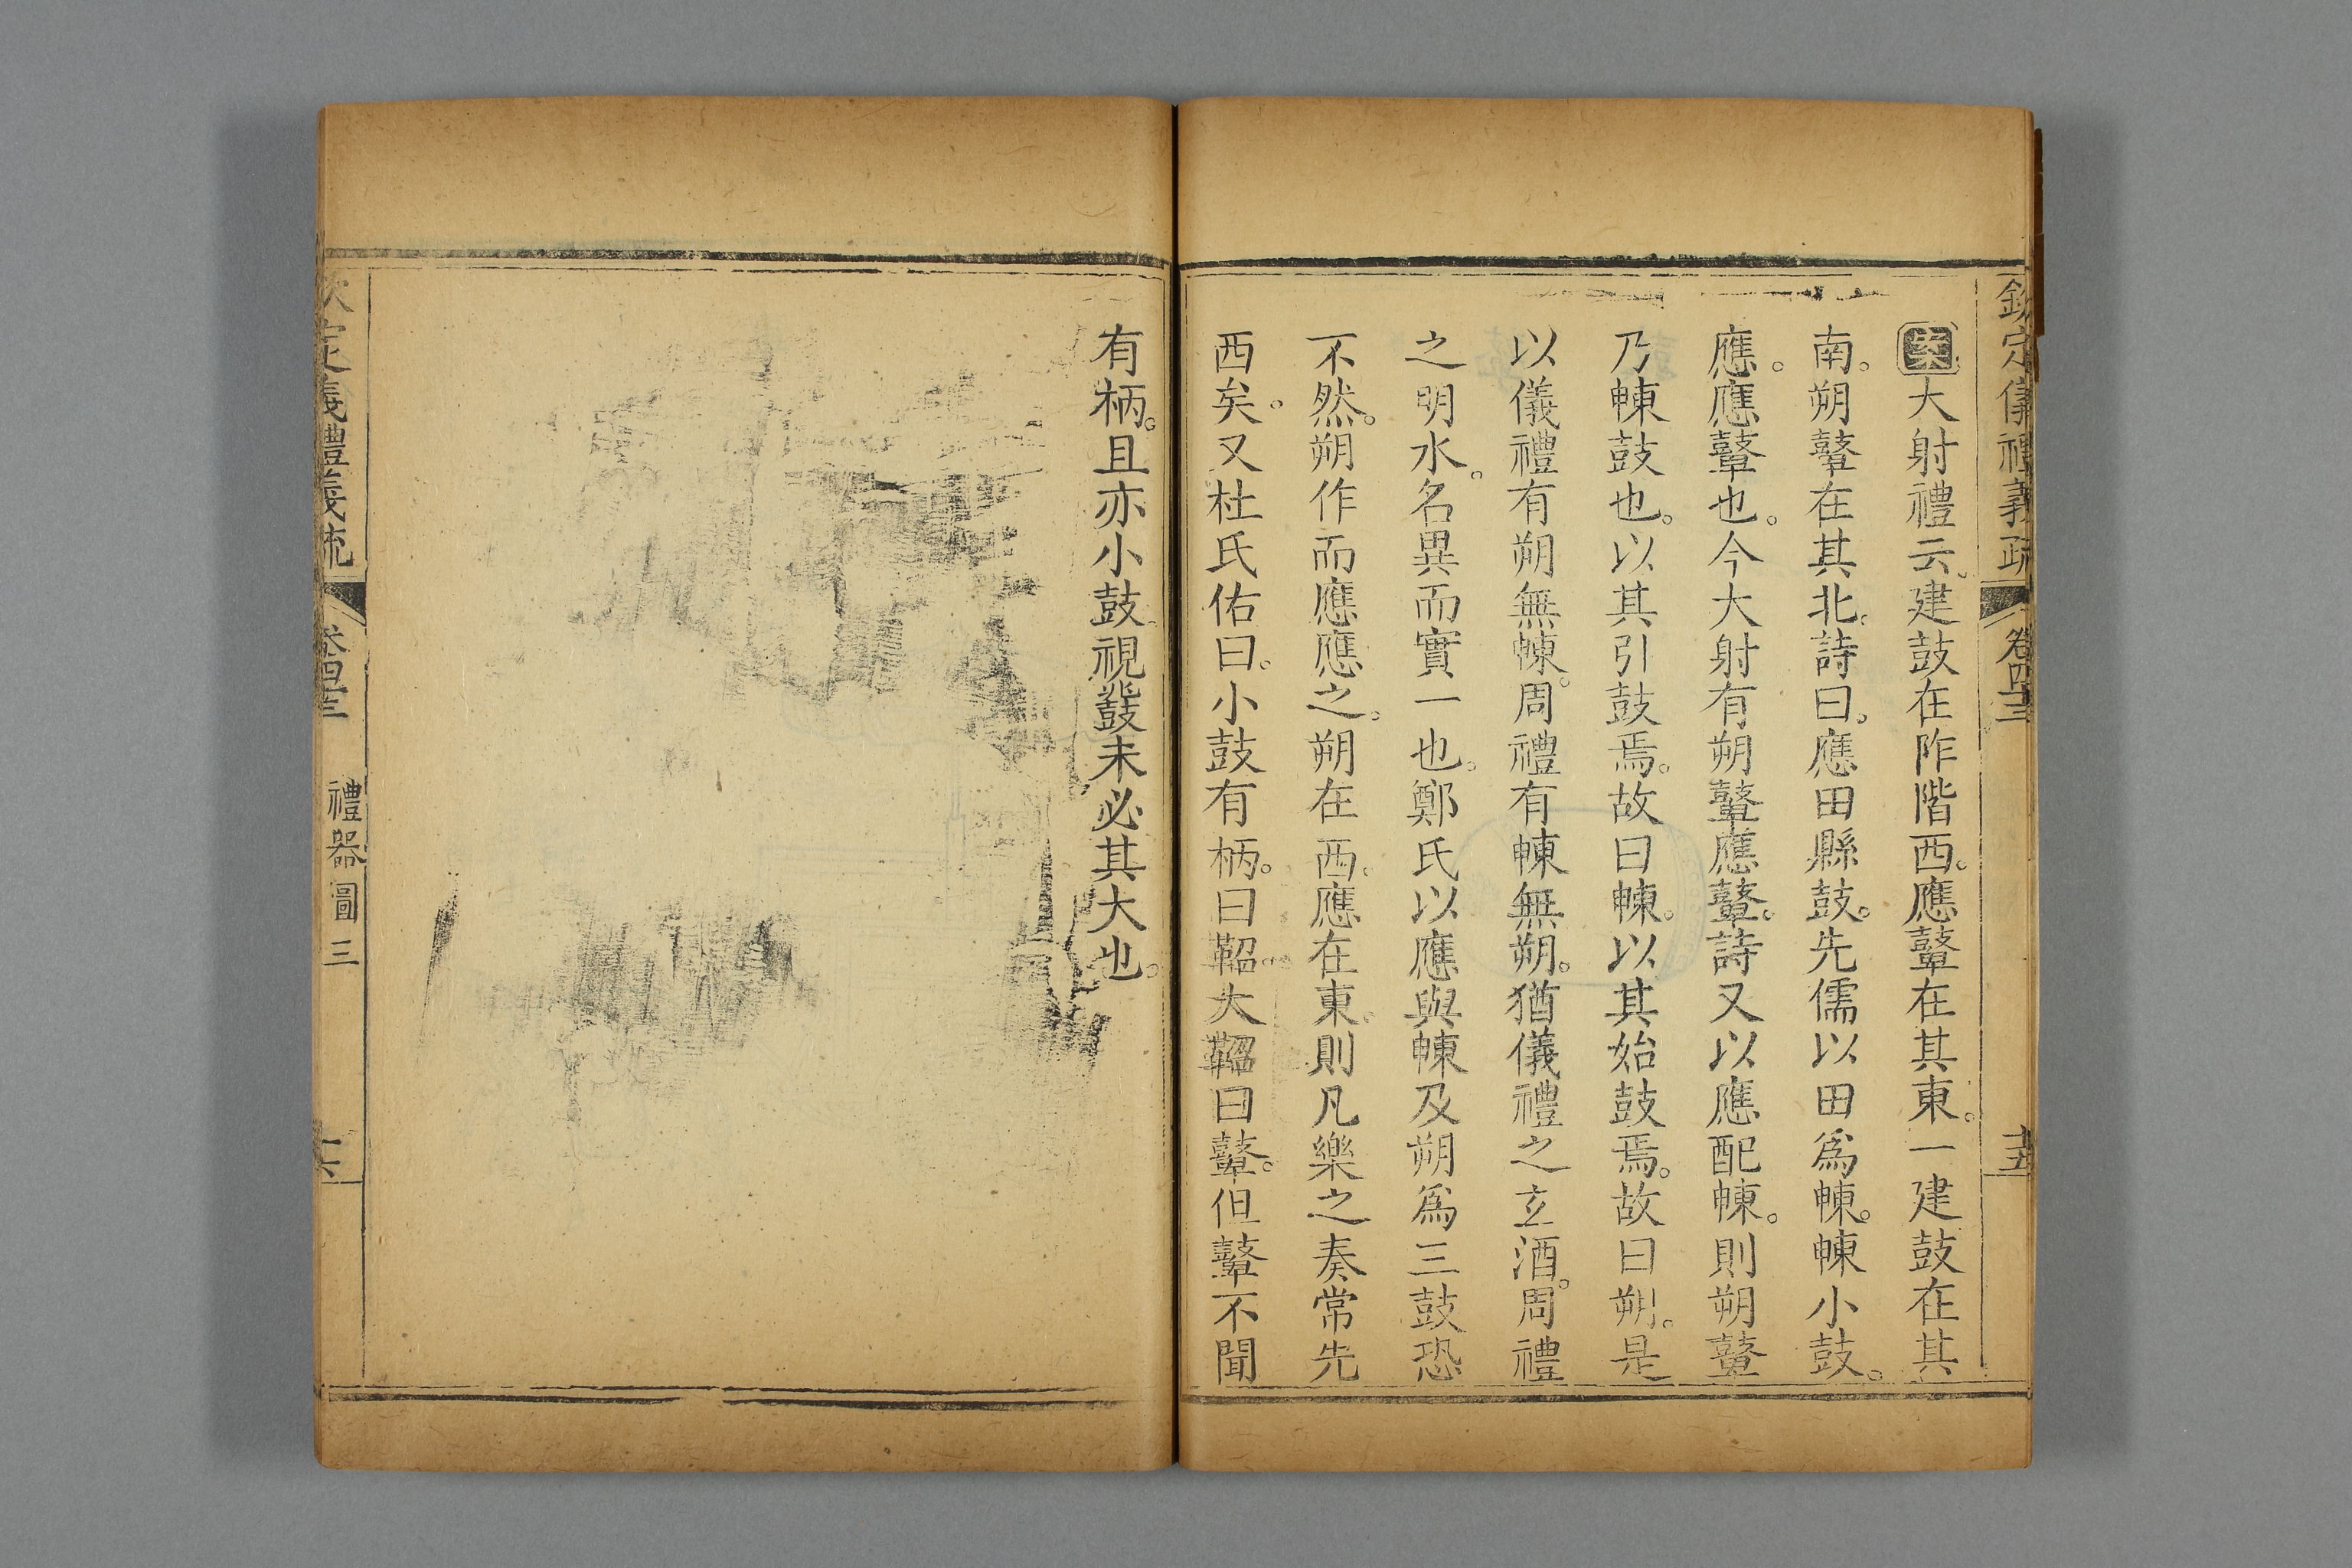 欽定儀禮義疏 卷四十三 十五
案大射禮云建鼓在阼階西。應鼙在其東。一建鼓在其
南。朔鼙在其北。詩曰。應田縣鼓。先儒以田爲朄。朄小鼓。
應。應鼙也。今大射有朔鼙應鼙。詩又以應配朄。則朔鼙
乃朄鼓也。以其引鼓焉。故曰朄。以其始鼓焉。故曰朔。是
以儀禮有朔無朄。周禮有朄無朔。猶儀禮之玄酒。周禮
之明水。名異而實一也。鄭氏以應與朄及朔爲三鼓恐
不然。朔作而應應之。朔在西。應在東。則凡樂之奏常先
西矣。又杜氏佑曰。小鼓有柄。曰鞀。大鞀曰鼙。但鼙不聞
有柄。且亦小鼓視鼗未必其大也。
欽定儀禮義疏 卷四十三 禮器圖三 十六